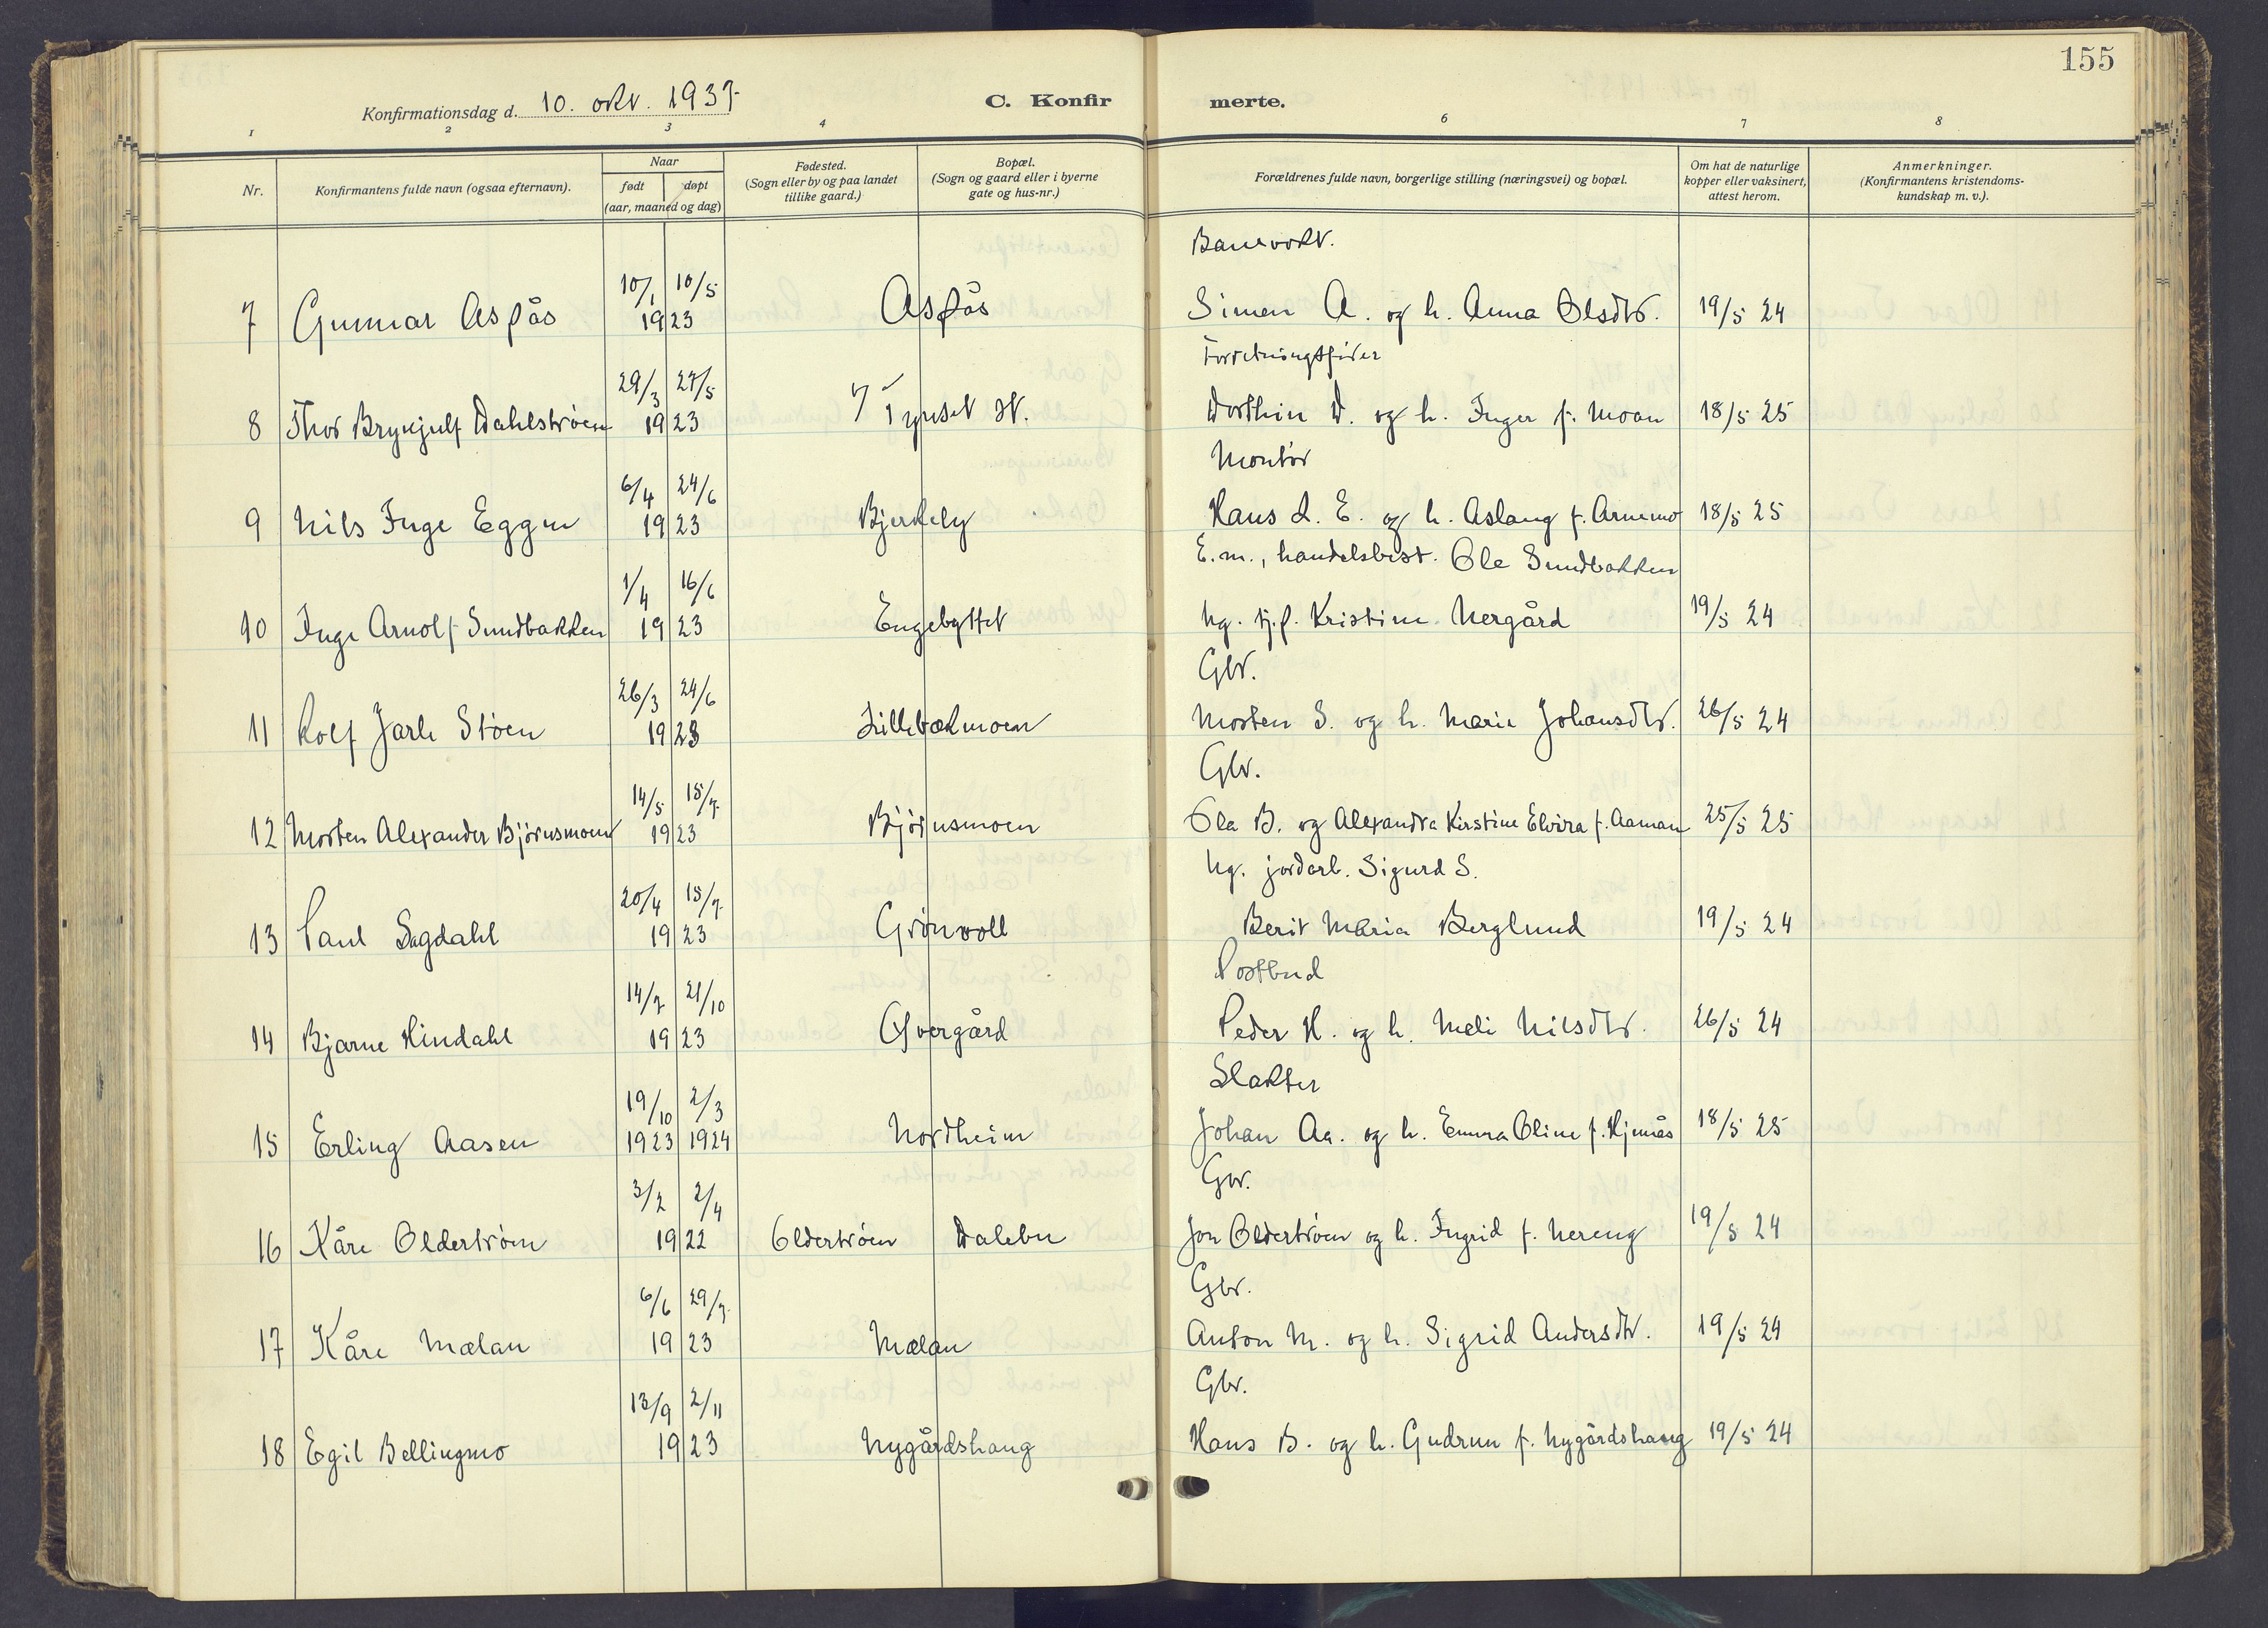 155
Konfirmationsdag d. 10. okt. 1937.
C. Konfir merte.
1 2 3 4 6 7 8
Nr.
Konfirmantens fulde navn (ogsaa efternavn).
Naar
født døpt
(aar, maaned og dag)
Fødested.
(Sogn eller by og paa landet
tillike gaard.)
Bopæl.
(Sogn og gaard eller i byerne
gate og hus-nr.)
Forældrenes fulde navn, borgerlige stilling (næringsvei) og bopæl.
Om hat de naturlige
kopper eller vaksinert,
attest herom.
Anmerkninger.
(Konfirmantens kristendoms-
kundskap m. v.).
Banevokt.
10/1 10/5
7 Gunnar Aspås 1923 Aspås Simen A. og h. Anna Olsdtr. 19/5 24
Forretningsfører
29/3 27/5
8 Thor Brynjulf Dahlstrøen 1923 Tynset st. Dorthin D. og h. Inger f. Moan 18/5 25
Montør
6/4 24/6
9 Nils Inge Eggen 1923 Bjerkely Hans L. E. og h. Aslaug f. Arnemo 18/5 25
E.m., handelsbest. Ole Sundbakken
1/4 16/6
10 Inge Arnolf Sundbakken 1923 Engebyttet Ug. tj.p. Kristine Nergård 19/5 24
Gbr.
26/3 24/6
11 Rolf Jarle Støen 1923 Lillebækmoen Morten S. og h. Marie Johansdtr. 26/5 24
Gbr.
14/5 15/7
12 Morten Alexander Bjørnsmoen 1923 Bjørnsmoen Ola B. og Alexandra Kirstine Elvira f. Aaman 25/5 25
Ug. jordarb. Sigurd S.
20/4 15/7
13 Paul Sagdahl 1923 Grønvoll Berit Maria Berglund 19/5 24
Postbud
14/7 21/10
14 Bjarne Hindahl 1923 Øvergård Peder H. og h. Meli Nilsdtr. 26/5 24
Slakter
19/10 2/3
15 Erling Aasen 1923 1924 Nordheim Johan Aa. og h. Emma Oline f. Hjemås 18/5 25
Gbr.
3/2 2/4
16 Kåre Oldertrøen 1922 Oldertrøen Dalebu Jon Oldertrøen og h. Ingrid f. Nereng 19/5 24
Gbr.
6/6 29/7
17 Kåre Mælan 1923 Mælan Anton M. og h. Sigrid Andersdtr. 19/5 24
Gbr.
13/9 2/11
18 Egil Bellingmo 1923 Nygårdshaug Hans B. og h. Gudrun f. Nygårdshaug 19/5 24